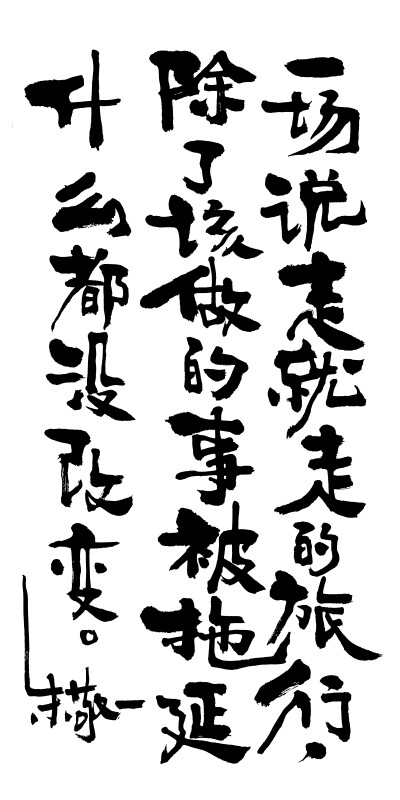 一场说走就走的旅行，
除了该做的事被拖延
什么都没改变。